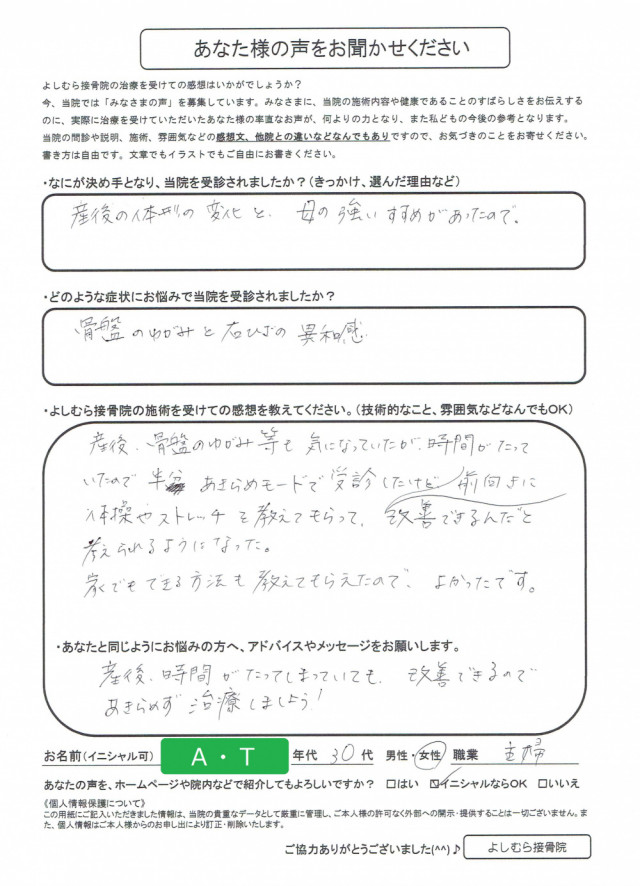 あなた様の声をお聞かせください
よしむら接骨院の治療を受けての感想はいかがでしょうか？
今、当院では「みなさまの声」を募集しています。みなさまに、当院の施術内容や健康であることのすばらしさをお伝えする
のに、実際に治療を受けていただいたあなた様の率直なお声が、何よりの力となり、また私どもの今後の参考となります。
当院の問診や説明、施術、雰囲気などの感想文、他院との違いなどなんでもありですので、お気づきのことをお寄せください。
書き方は自由です。文章でもイラストでもご自由にお書きください。
・なにが決め手となり、当院を受診されましたか？（きっかけ、選んだ理由など）
産後の体形の変化と、母の強いすすめがあったので。
・どのような症状にお悩みで当院を受診されましたか？
骨盤のゆがみと右ひざの異和感
・よしむら接骨院の施術を受けての感想を教えてください。（技術的なこと、雰囲気などなんでもOK）
産後、骨盤のゆがみ等も気になっていたが、時間がたって
いたので 半分 あきらめモードで受診したけど 前向きに
体操やストレッチを教えてもらって、改善できるんだと
考えられるようになった。
家でもできる方法も教えてもらえたので、よかったです。
・あなたと同じようにお悩みの方へ、アドバイスやメッセージをお願いします。
産後、時間がたってしまっていても、改善できるので
あきらめず治療しましょう！
お名前（イニシャル可） A・T 年代 30代 男性・女性 職業 主婦
あなたの声を、ホームページや院内などで紹介してもよろしいですか？ □はい ☑イニシャルならOK □いいえ
《個人情報保護について》
この用紙にご記入いただきました情報は、当院の貴重なデータとして厳重に管理し、ご本人様の許可なく外部への開示・提供することは一切ございません。ま
た、個人情報はご本人様からのお申し出により訂正・削除いたします。
ご協力ありがとうございました(^^)♪ よしむら接骨院